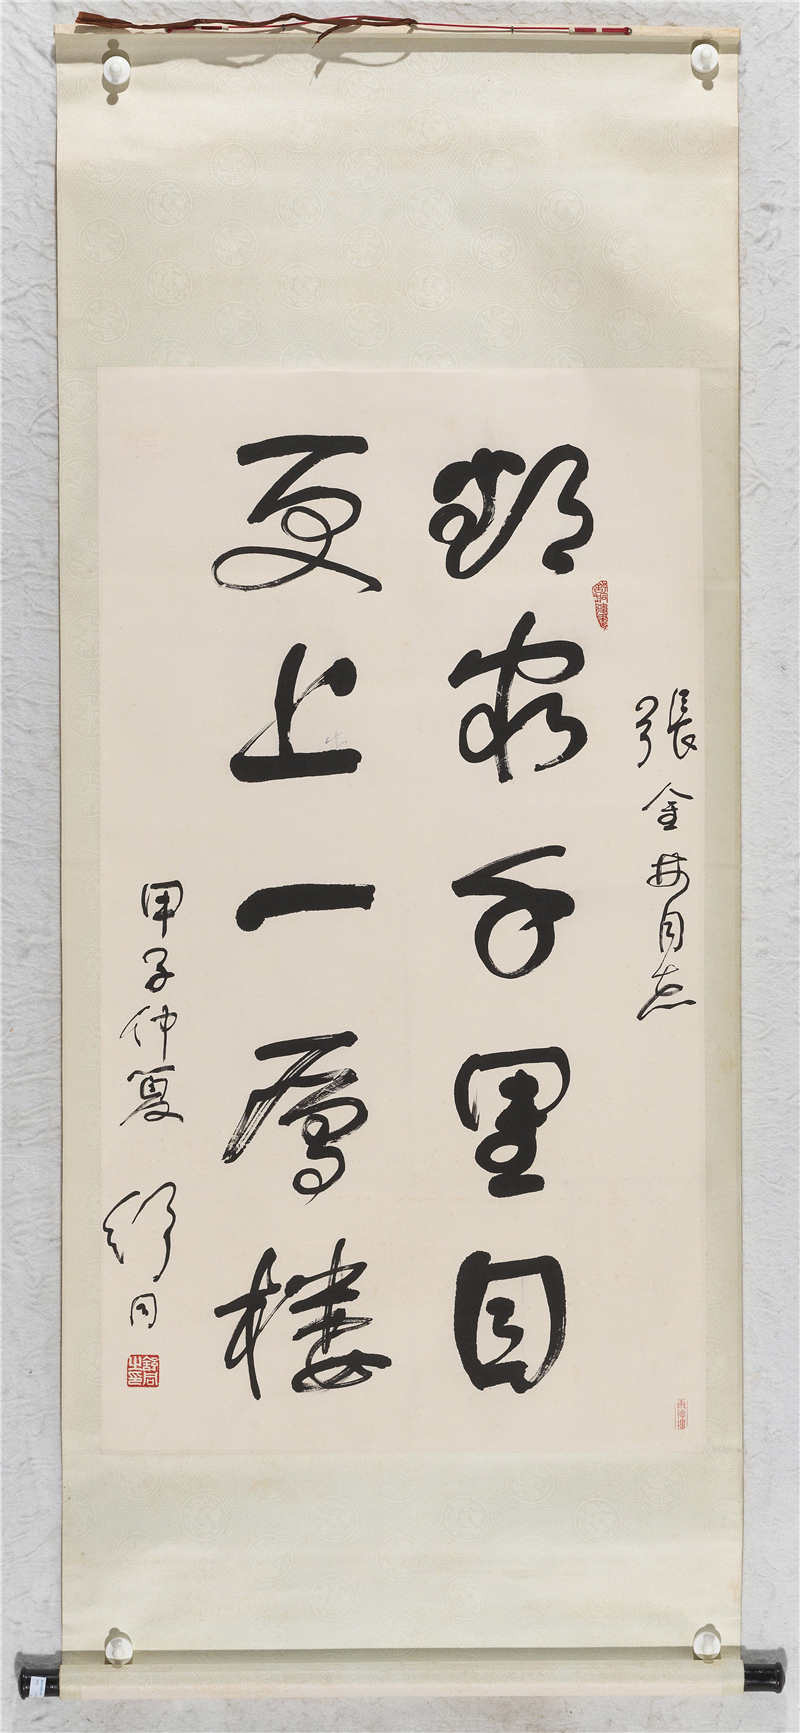 張金林同志
欲窮千里目
更上一層樓
甲子仲夏 舒同
舒同之印